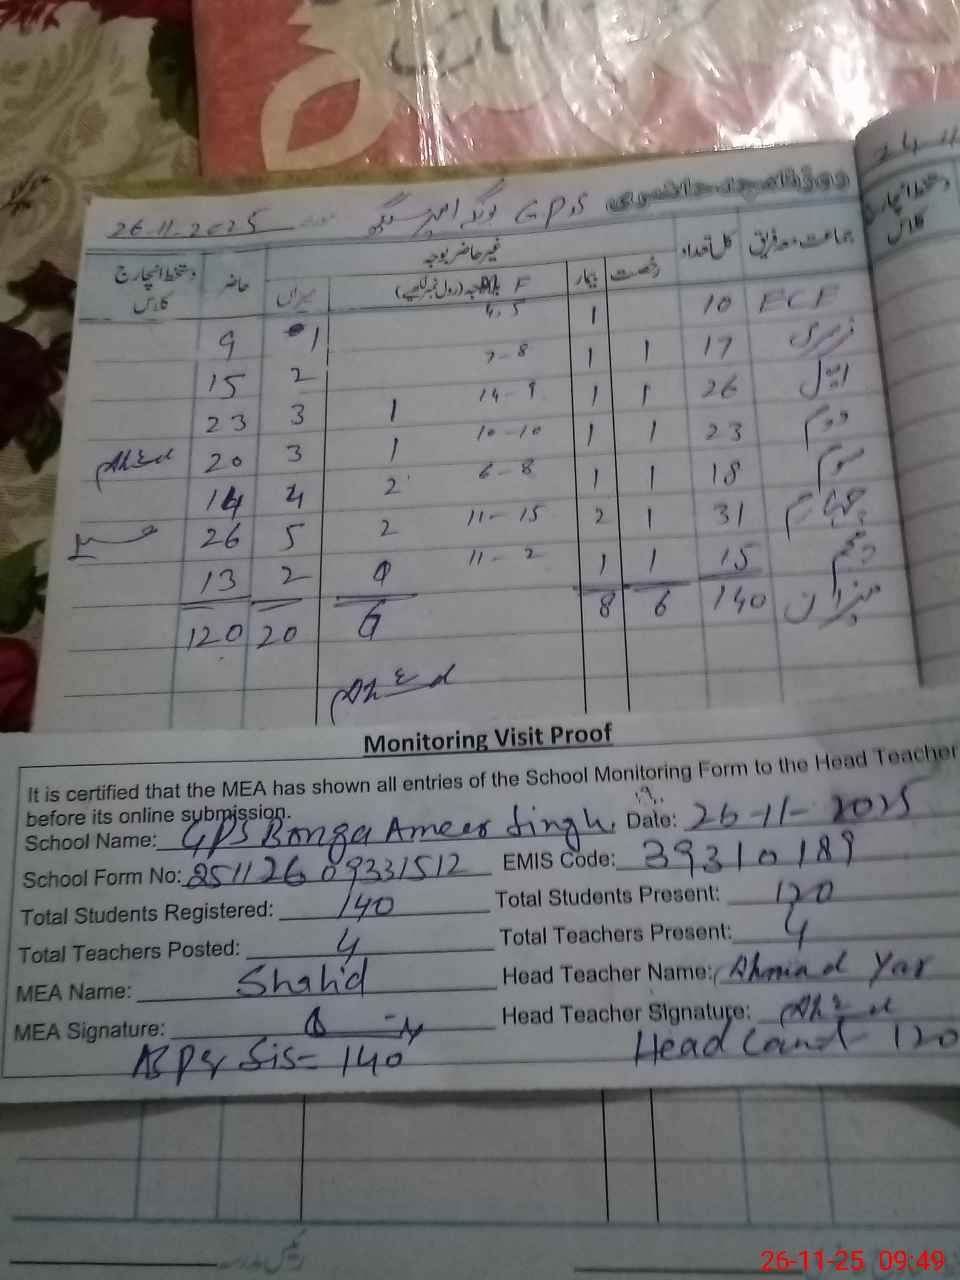 روزنامچہ حاضری GPS بونگہ امیر سنگھ 26-11-2025
24-11
جماعت معہ فریق کل تعداد غیر حاضر بوجہ حاضر دستخط انچارج کلاس
رخصت بیمار بلاوجہ (رول نمبر لکھیے) F میزان
دستخط انچارج کلاس
ECE 10 1 4.5 1 9
نرسری 17 1 1 7-8 2 15
اول 26 1 1 14-9 1 3 23
دوم 23 1 1 10-10 1 3 20
سوم 18 1 1 6-8 2 4 14
چہارم 31 1 2 11-15 2 5 26
پنجم 15 1 1 11-2 0 2 13
میزان 140 6 8 6 20 120
Monitoring Visit Proof
It is certified that the MEA has shown all entries of the School Monitoring Form to the Head Teacher
before its online submission.
School Name: GPS Bonga Ameer Singh. Date: 26-11-2025
School Form No: 25112609331512 EMIS Code: 39310189
Total Students Registered: 140 Total Students Present: 120
Total Teachers Posted: 4 Total Teachers Present: 4
MEA Name: Shahid Head Teacher Name: Ahmad Yar
MEA Signature: Head Teacher Signature:
As per Sis = 140 Head Count - 120
26-11-25 09:49